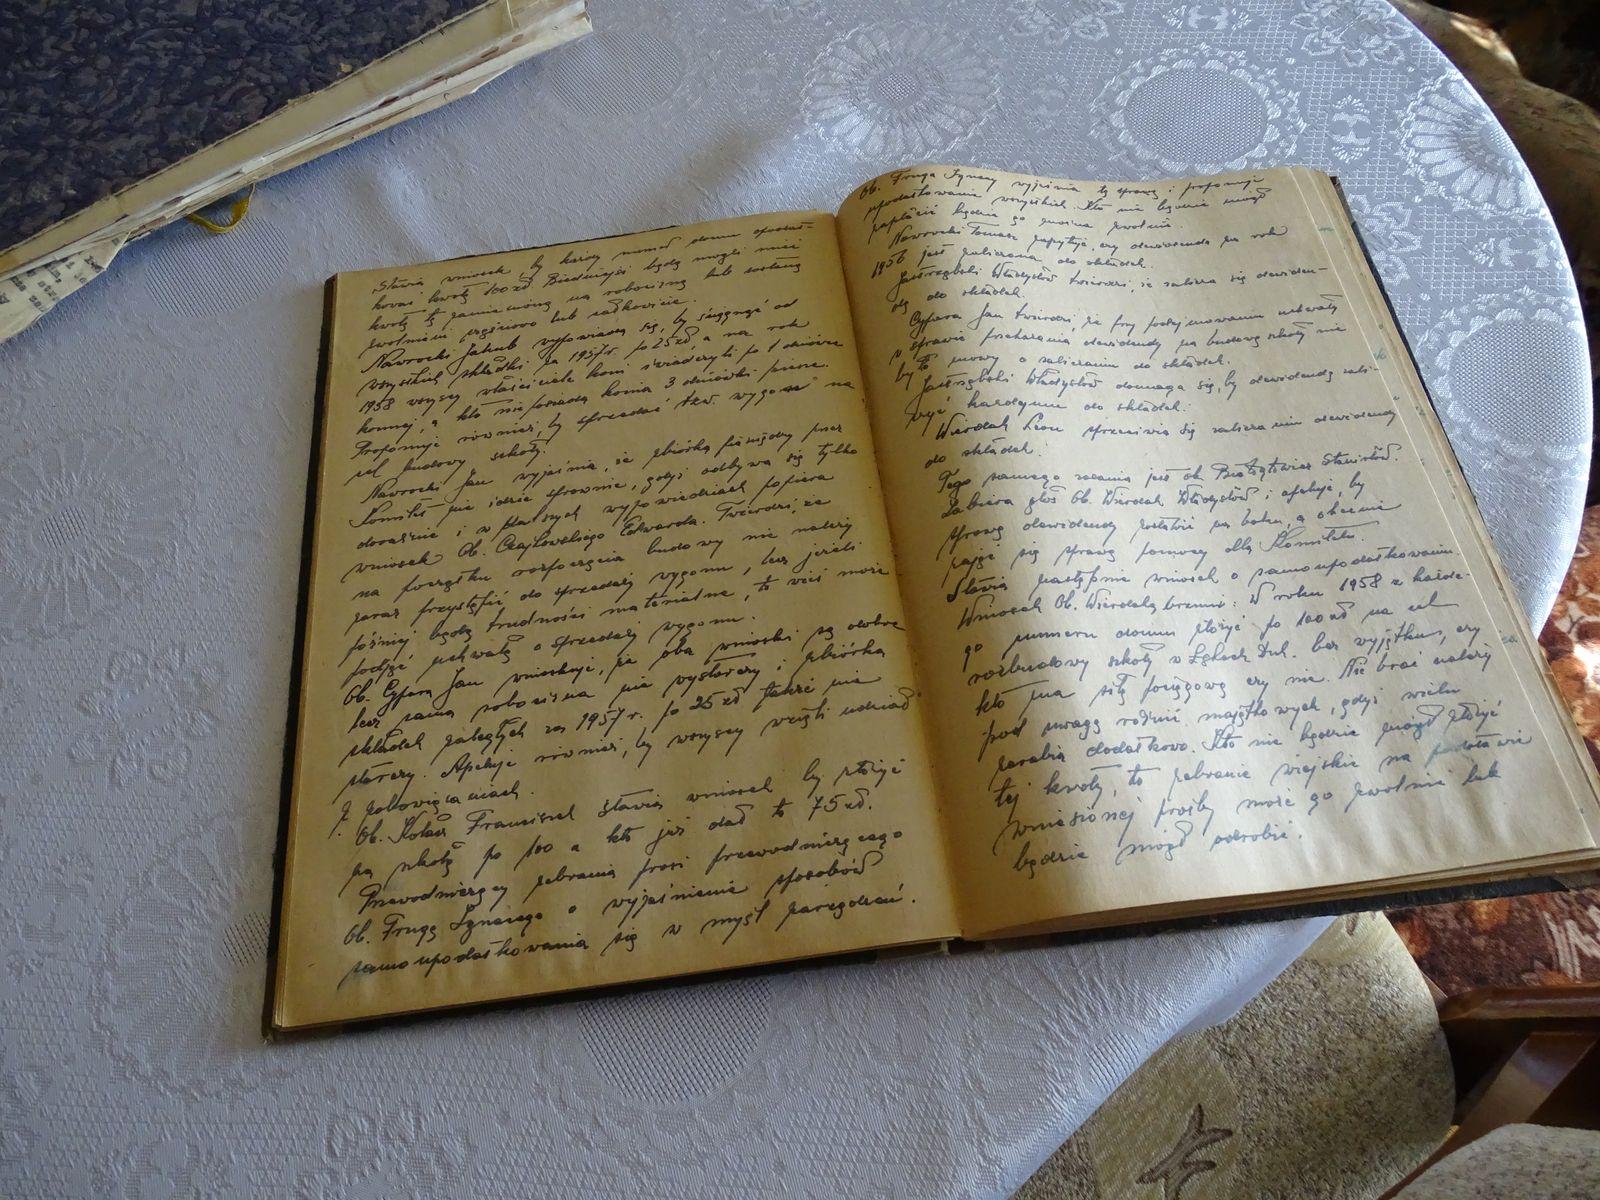 Stawia wniosek by każdy numer domu opodat-
kować kwotą 100 zł. Biedniejsi będą mogli mieć
kwotę tę zamienioną na robociznę lub zostaną
zwolnieni częściowo lub całkowicie.
Nawrocki Jakub wypowiada się, by ściągnąć od
wszystkich składki za 1957 r. po 25 zł, a na rok
1958 wszyscy właściciele koni świadczyli po 1 dniówce
konnej, a kto nie posiada konia 3 dniówki piesze.
Proponuje również, by sprzedać tzw. wygon na
cel budowy szkoły.
Nawrocki Jan wyjaśnia, że zbiórka pieniędzy przez
Komitet nie idzie sprawnie, gdyż odbywa się tylko
doraźnie i w dalszych wypowiedziach popiera
wniosek Ob. Czajkowskiego Edwarda. Twierdzi, że
na początku rozpoczęcia budowy nie należy
zaraz przystąpić do sprzedaży wygonu, lecz jeżeli
później będą trudności materialne, to wieś może
podjąć uchwałę o sprzedaży wygonu.
Ob. Cyfara Jan wnioskuje, że oba wnioski są dobre
lecz sama robocizna nie wystarczy i zbiórka
składek zaległych za 1957 r. po 25 zł także nie
starczy. Apeluje również, by wszyscy wzięli udział
w zobowiązaniach.
Ob. Kołacz Franciszek stawia wniosek by złożyć
na szkołę po 100 a kto już dał to 75 zł.
Przewodniczący zebrania prosi przewodniczącego
Ob. Frugę Ignacego o wyjaśnienie sposobów
samoopodatkowania się w myśl zarządzeń.
Ob. Fruga Ignacy wyjaśnia tę sprawę i proponuje
opodatkowanie wszystkich. Kto nie będzie mógł
zapłacić będzie go można zwolnić.
Nawrocki Tomasz zapytuje, czy dewidenda za rok
1956 jest zaliczana do składek.
Jastrzębski Władysław twierdzi, że zalicza się dewiden-
dę do składek.
Cyfara Jan twierdzi, że przy podejmowaniu uchwały
w sprawie przekazania dewidendy na budowę szkoły nie
było mowy o zaliczaniu do składek.
Jastrzębski Władysław domaga się, by dewidendę zali-
czyć każdemu do składek.
Wierdak Leon sprzeciwia się zaliczaniu dewidendy
do składek.
Tego samego zdania jest ob. Stanisław.
Zabiera głos Ob. Wierdak Władysław i apeluje, by
sprawę dewidendy zostawić na boku, a obecnie
zająć się sprawą pomocy dla Komitetu.
Stawia następnie wniosek o samoopodatkowaniu.
Wniosek Ob. Wierdaka brzmi: W roku 1958 z każde-
go numeru domu złożyć po 100 zł na cel
rozbudowy szkoły w Łękach Duk. bez wyjątku, czy
kto ma siłę pociągową czy nie. Nie brać należy
pod uwagę różnic majątkowych, gdyż wielu
zarabia dodatkowo. Kto nie będzie mógł złożyć
tej kwoty, to zebranie wiejskie na podstawie
wniesionej prośby może go zwolnić lub
będzie mógł odrobić.